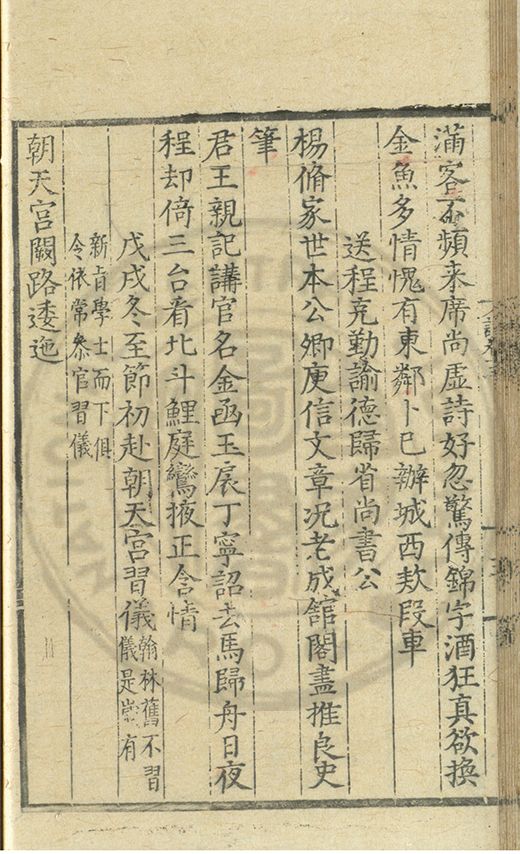 滿客不頻来席尚虛詩好忽驚傳錦字酒狂真欲換
金魚多情愧有東鄰卜已辦城西欵段車
送程克勤諭德歸省尚書公
楊脩家世本公卿庾信文章况老成舘閣盡推良史
筆
君王親記講官名金函玉扆丁寧詔去馬歸舟日夜
程却倚三台看北斗鯉庭鸞掖正含情
戊戌冬至節初赴朝天宮習儀翰林舊不習
儀是嵗有
新旨學士而下俱
令依常叅官習儀
朝天宮闕路逶迤